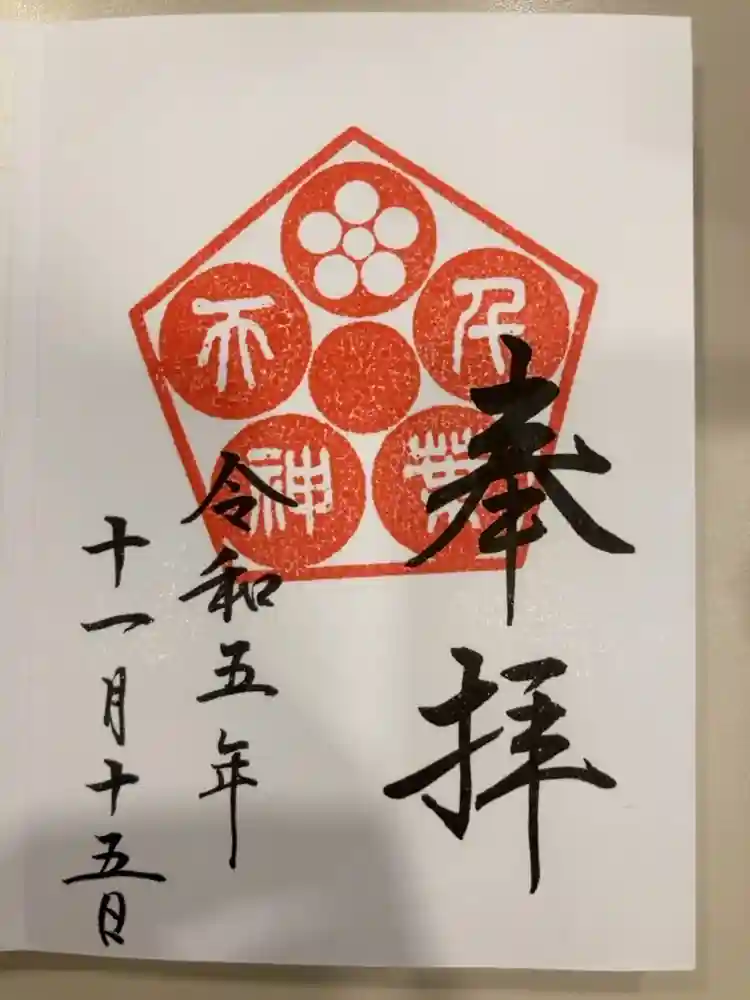 奉拝
千葉
天神
令和五年
十一月十五日